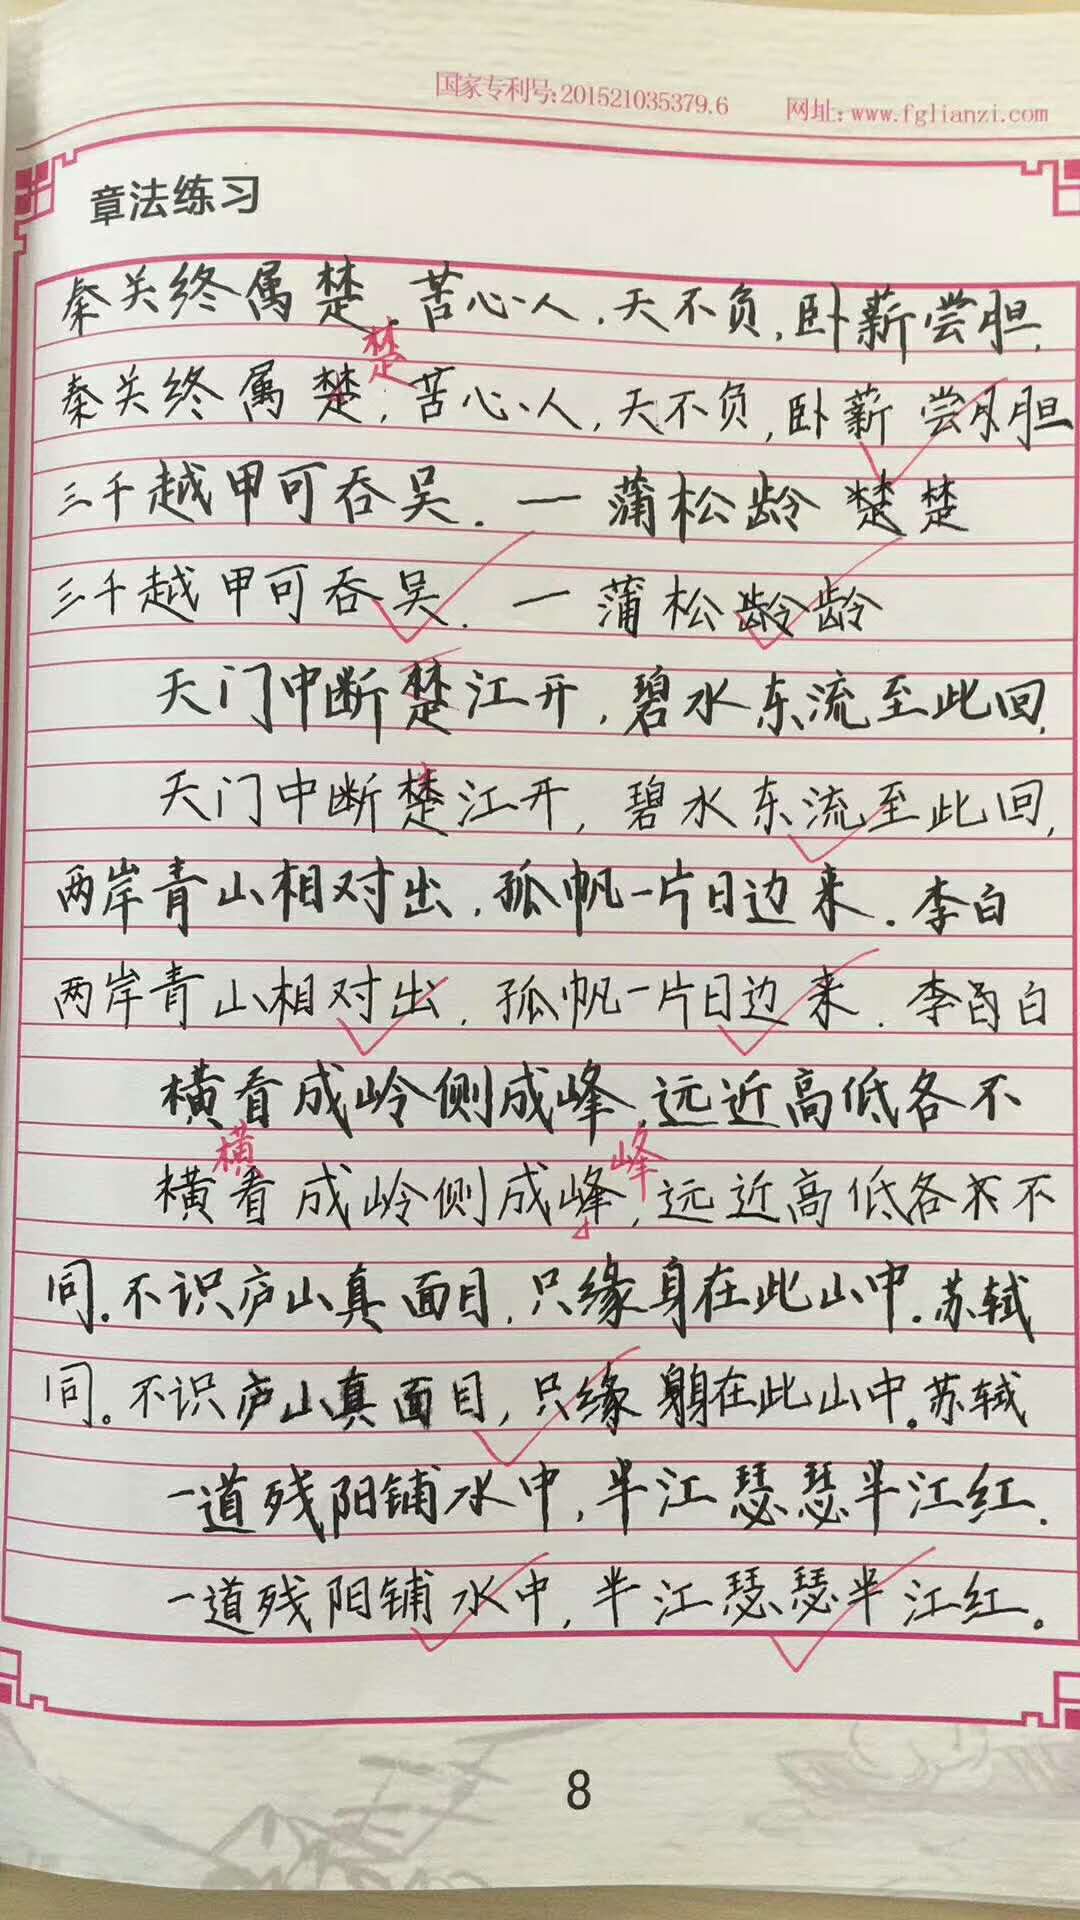 国家专利号:201521035379.6 网址:www.fglianzi.com
章法练习
秦关终属楚.苦心人,天不负,卧薪尝胆,
楚
秦关终属楚,苦心人,天不负,卧薪尝月胆
三千越甲可吞吴.一蒲松龄 楚楚
三千越甲可吞吴.一蒲松龄龄
天门中断楚江开,碧水东流至此回,
天门中断楚江开,碧水东流至此回,
两岸青山相对出,孤帆一片日边来.李白
两岸青山相对出,孤帆一片日边来.李白
横看成岭侧成峰,远近高低各不
横 峰
横看成岭侧成峰,远近高低各不不
同.不识庐山真面目,只缘身在此山中.苏轼
同。不识庐山真面目,只缘身在此山中。苏轼
一道残阳铺水中,半江瑟瑟半江红.
一道残阳铺水中,半江瑟瑟半江红。
8